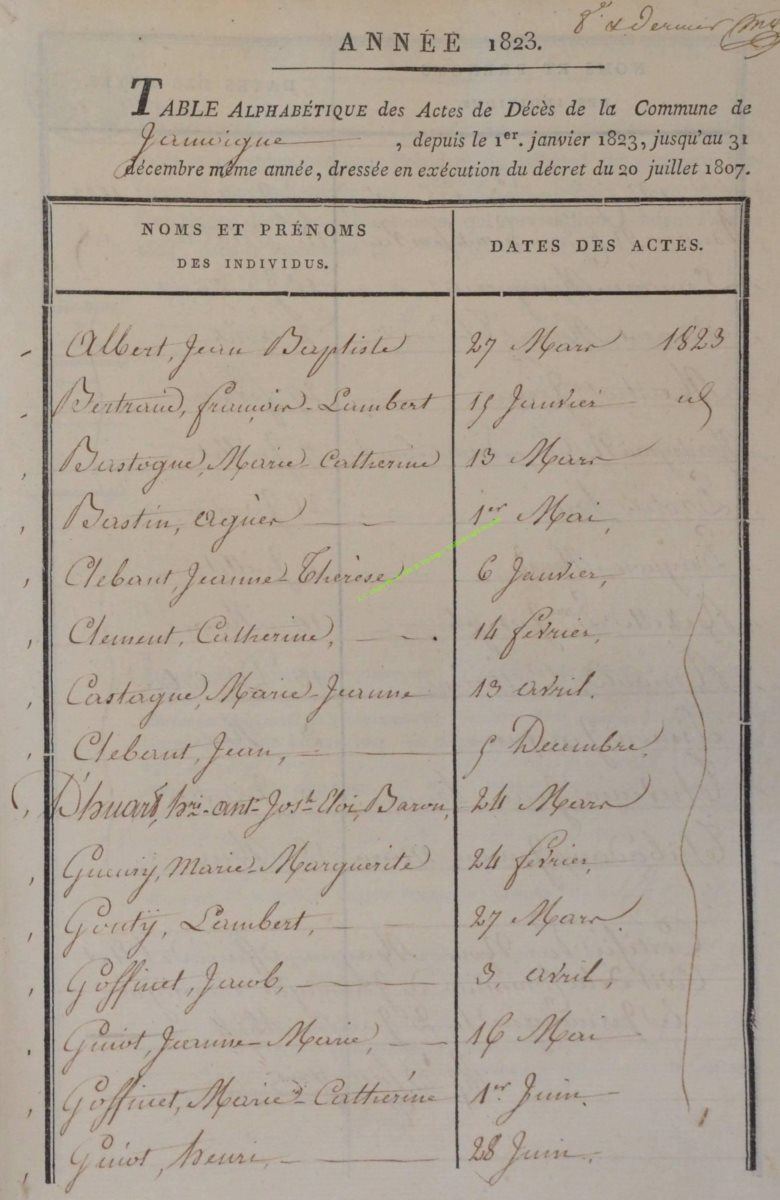 8e & dernier
ANNÉE 1823.
TABLE ALPHABÉTIQUE des Actes de Décès de la Commune de
Jamoigne, depuis le 1er. janvier 1823, jusqu'au 31
décembre même année, dressée en exécution du décret du 20 juillet 1807.
NOMS ET PRÉNOMS DES INDIVIDUS. DATES DES ACTES.
Albert, Jean Baptiste 27 Mars 1823
Bertrand, françois-Lambert 15 Janvier id
Bastogne, Marie-Catherine 13 Mars
Bastin, Agnès 1er Mai,
Clebant, Jeanne-Thérèse 6 Janvier,
Clement, Catherine, 14 février,
Castagne, Marie-Jeanne 13 avril.
Clebant, Jean, 5 Decembre.
D'huart, hri-ant-Josh Eloi, Baron, 24 Mars
Gueury, Marie-Marguerite 24 février,
Gouty, Lambert, 27 Mars.
Goffinet, Jacob, 3, avril,
Guiot, Jeanne-Marie, 16 Mai
Goffinet, Marie-Catherine 1er Juin.
Guiot, henri, 28 Juin.